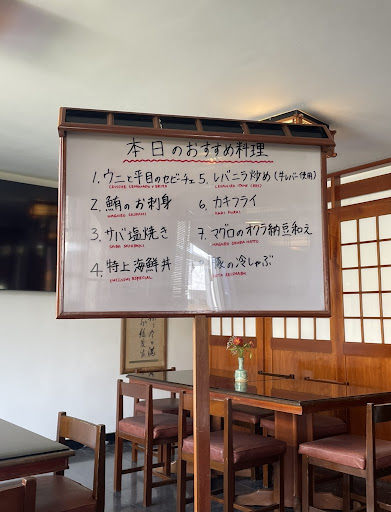 本日のおすすめ料理
1. ウニと平目のセビーチェ
2. 鮪のお刺身
3. サバ塩焼き
SABA SHIOYAKI
4. 特上海鮮丼
5. レバニラ炒め (牛レバー使用)
6. カキフライ
KAKI FURAI
7. マグロのオクラ納豆和え
豚の冷しゃぶ